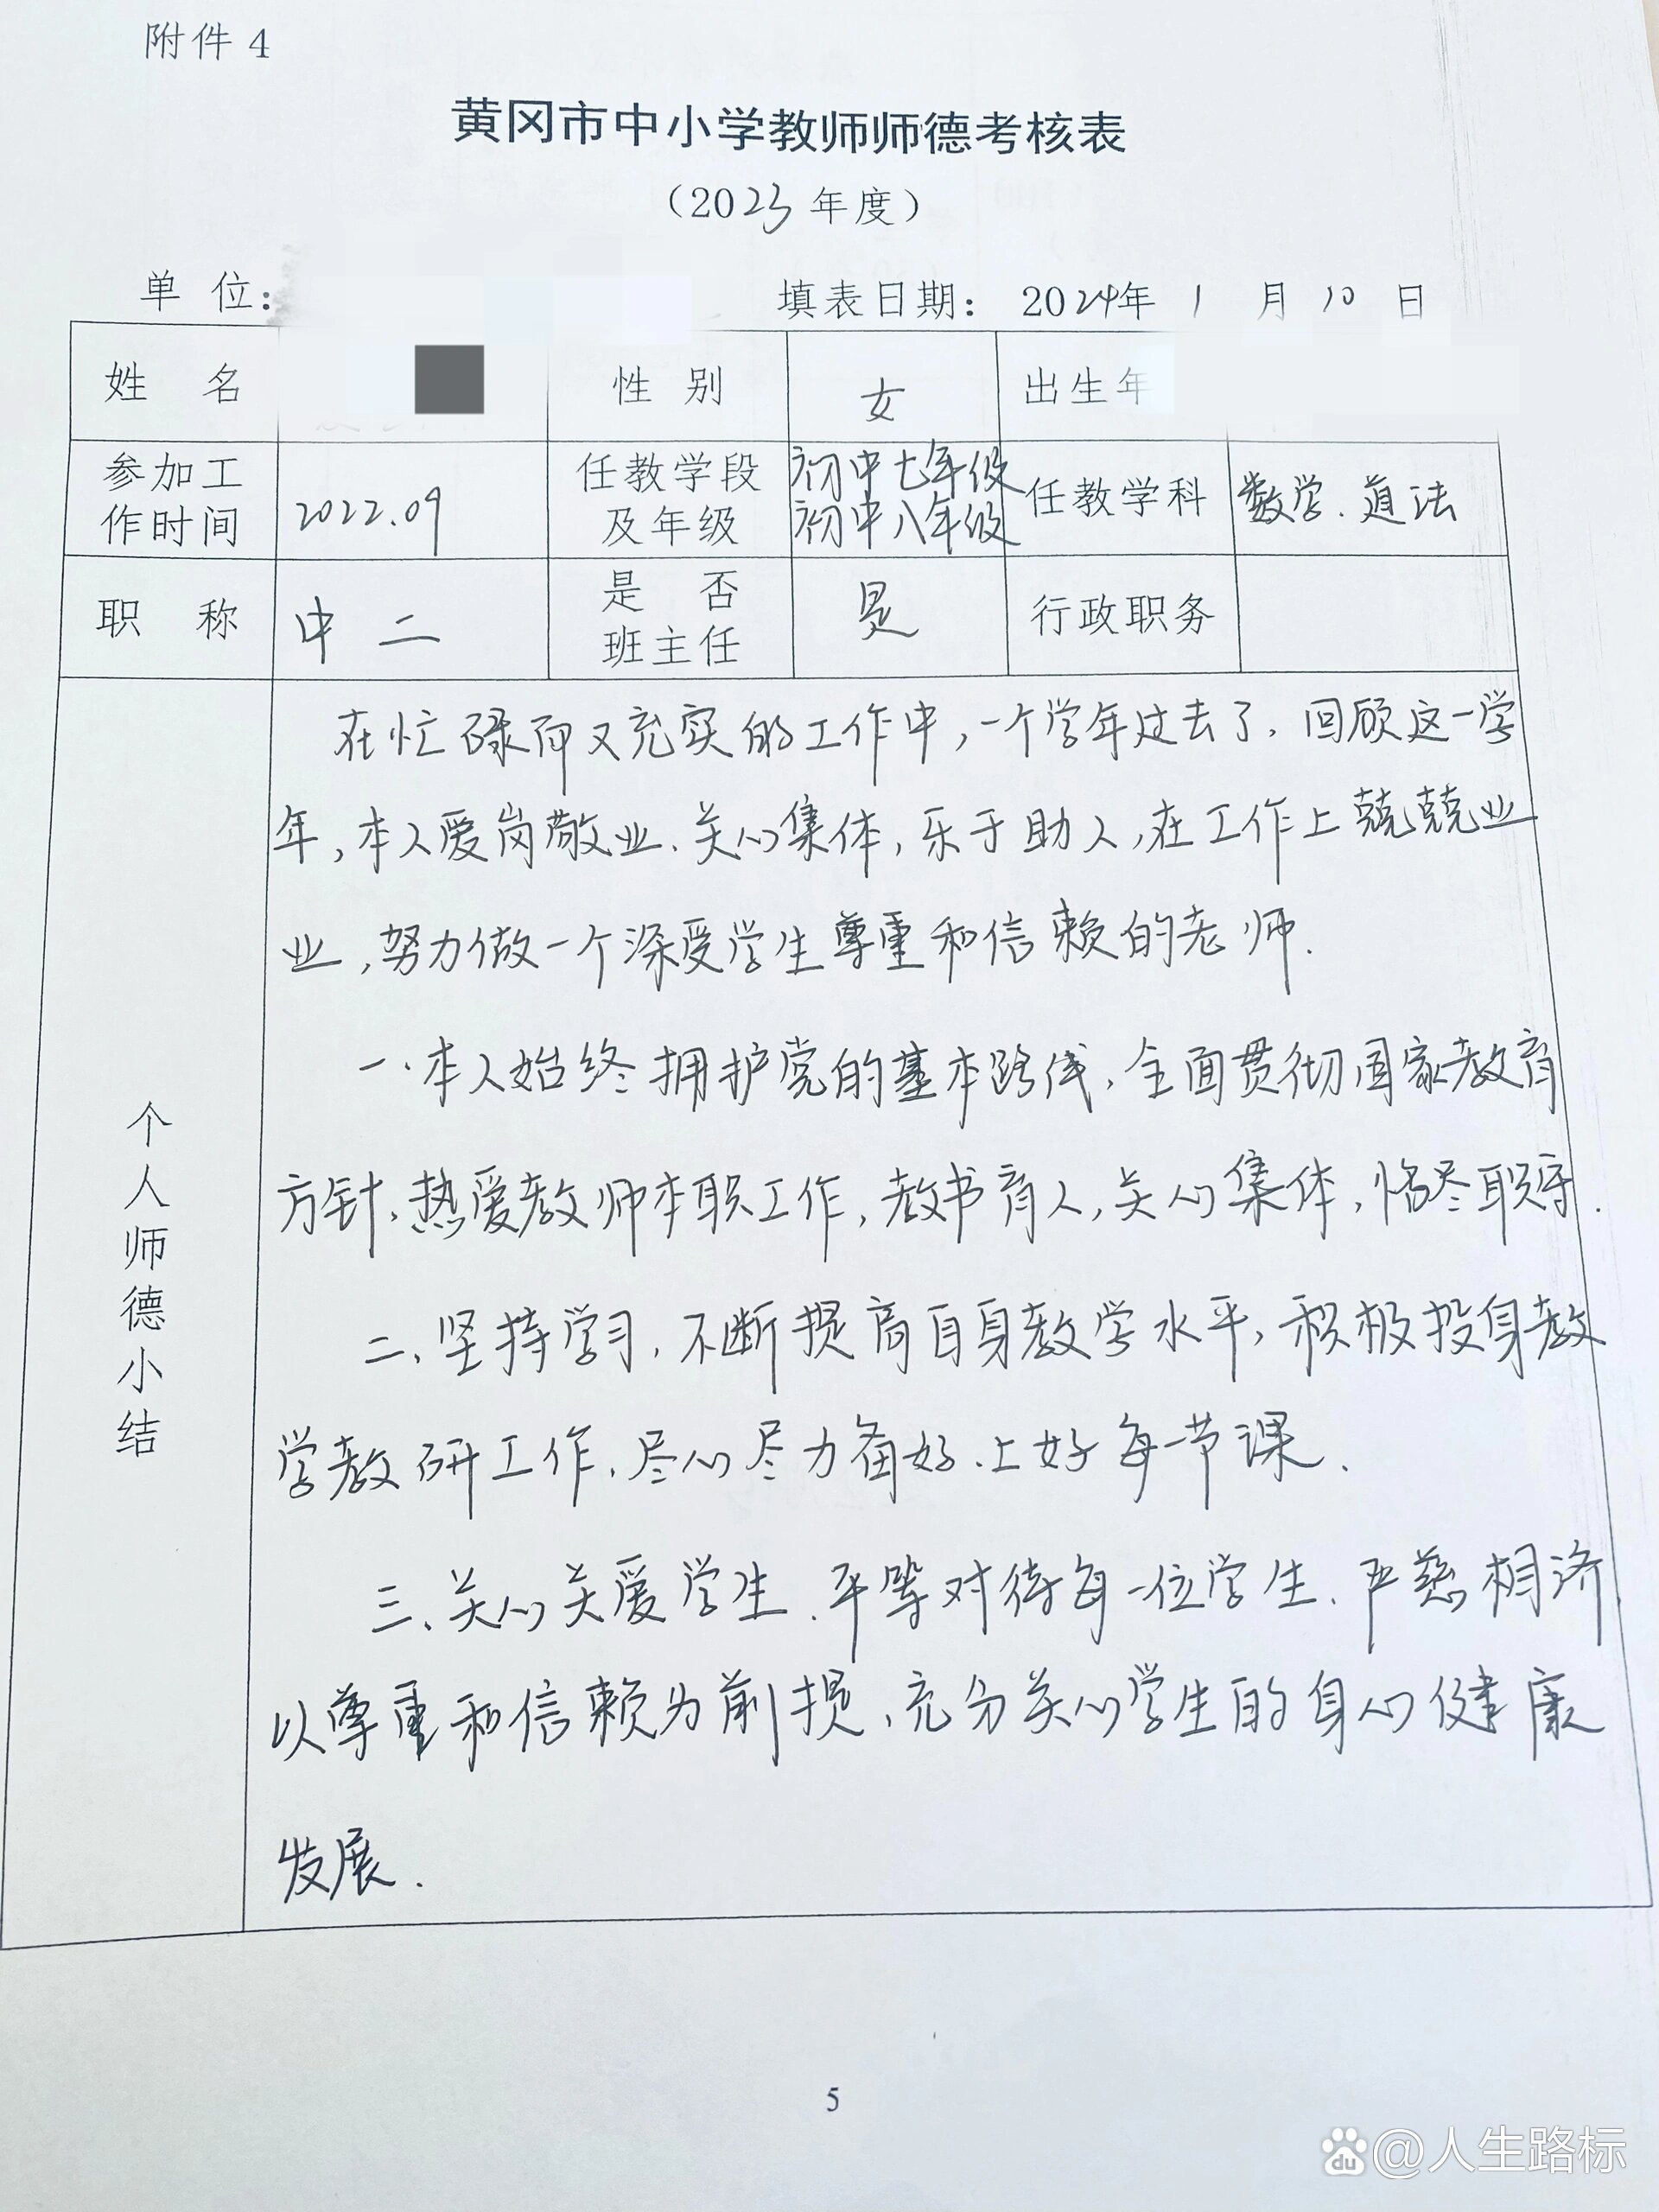 附件 4
黄冈市中小学教师师德考核表
（2023 年度）
单 位： 填表日期： 2024年 1 月 10 日
姓 名 性 别 女 出生年
参加工作时间 2022.09 任教学段及年级 初中七年级 初中八年级 任教学科 数学、道法
职 称 中 二 是 否 班主任 是 行政职务
个人师德小结
在忙碌而又充实的工作中，一个学年过去了，回顾这一学
年，本人爱岗敬业、关心集体，乐于助人，在工作上兢兢业
业，努力做一个深受学生尊重和信赖的老师.
一.本人始终拥护党的基本路线，全面贯彻国家教育
方针，热爱教师本职工作，教书育人，关心集体，恪尽职守.
二、坚持学习，不断提高自身教学水平，积极投身教
学教研工作，尽心尽力备好、上好每一节课.
三、关心关爱学生、平等对待每一位学生、严慈相济
以尊重和信赖为前提，充分关心学生的身心健康
发展.
5
du @人生路标